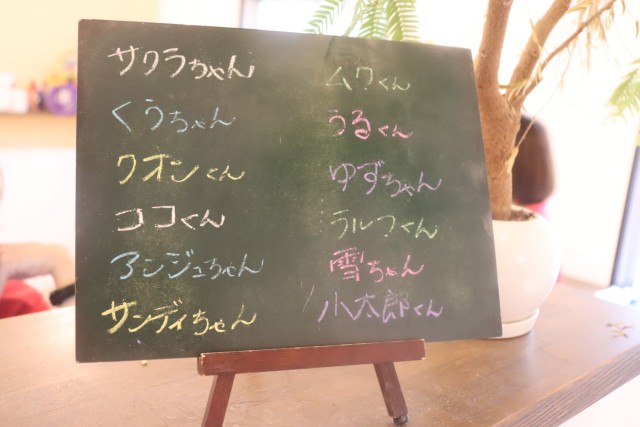 サクラちゃん
くうちゃん
クオンくん
ココくん
アンジュちゃん
サンディちゃん
ムクくん
うるくん
ゆずちゃん
ラルフくん
雪ちゃん
小太郎くん